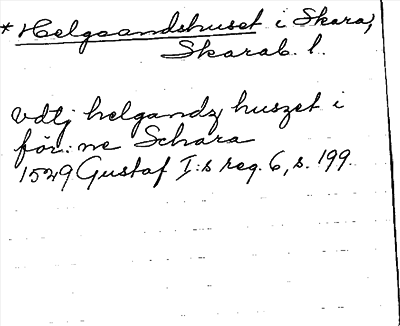 * Helgeandshuset i Skara,
Skarab. l.
vdtj helgandz huszet i
för:ne Schara
1529 Gustaf I:s reg. 6, s. 199.